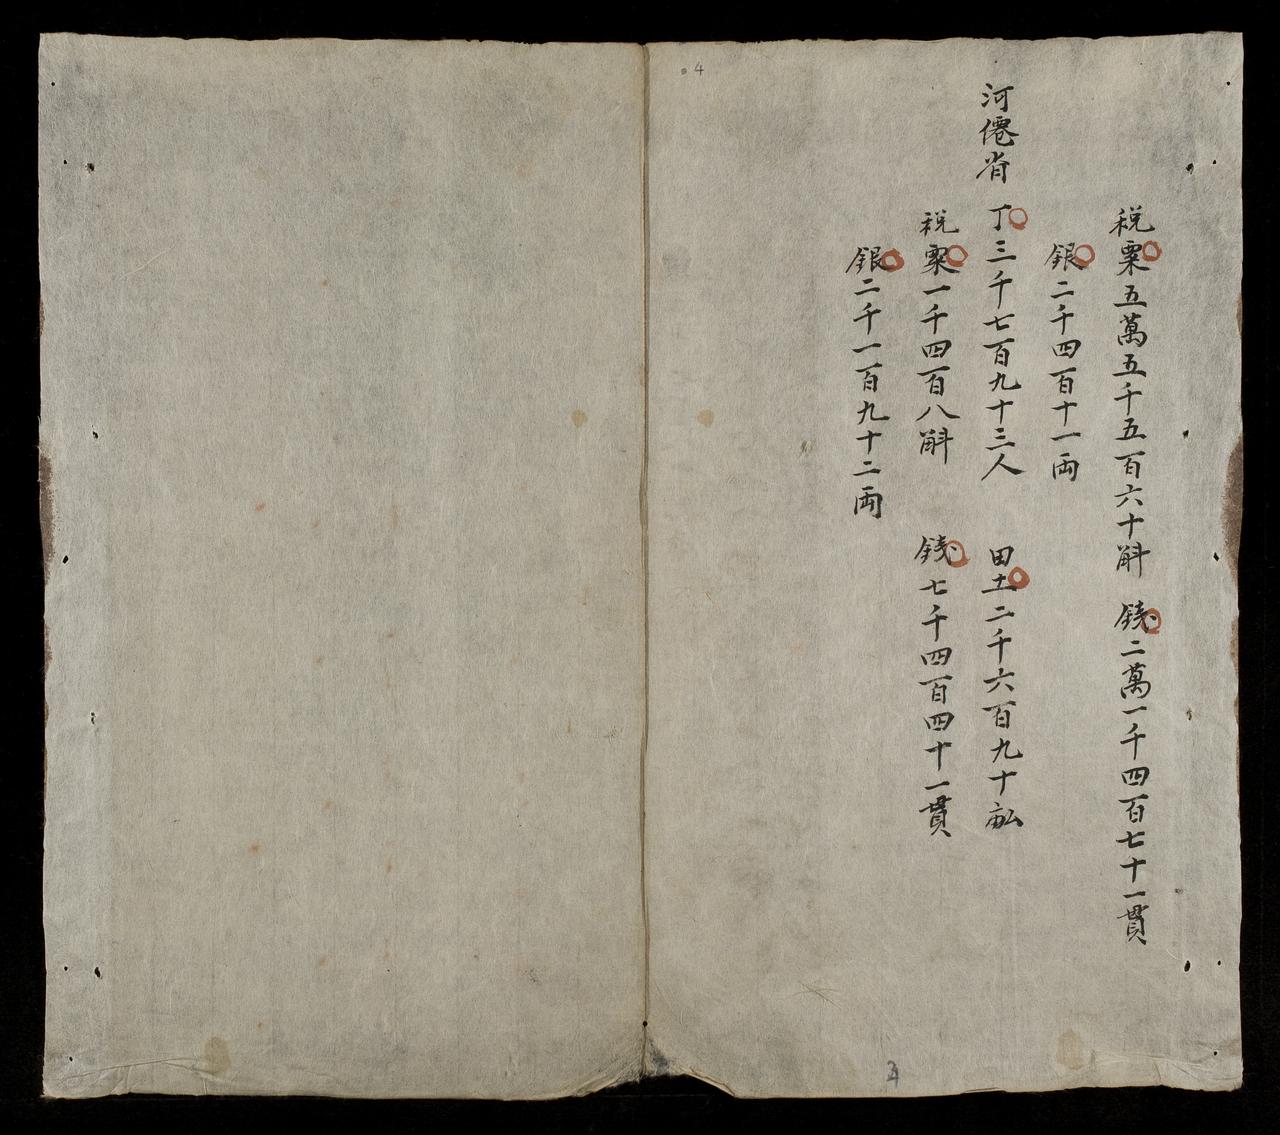 税粟五萬五千五百六十斛　錢二萬一千四百七十一貫
銀二千四百十一両
河僊省　丁三千七百九十三人　田土二千六百九十畝
税粟一千四百八斛　錢七千四百四十一貫
銀二千一百九十二両
4